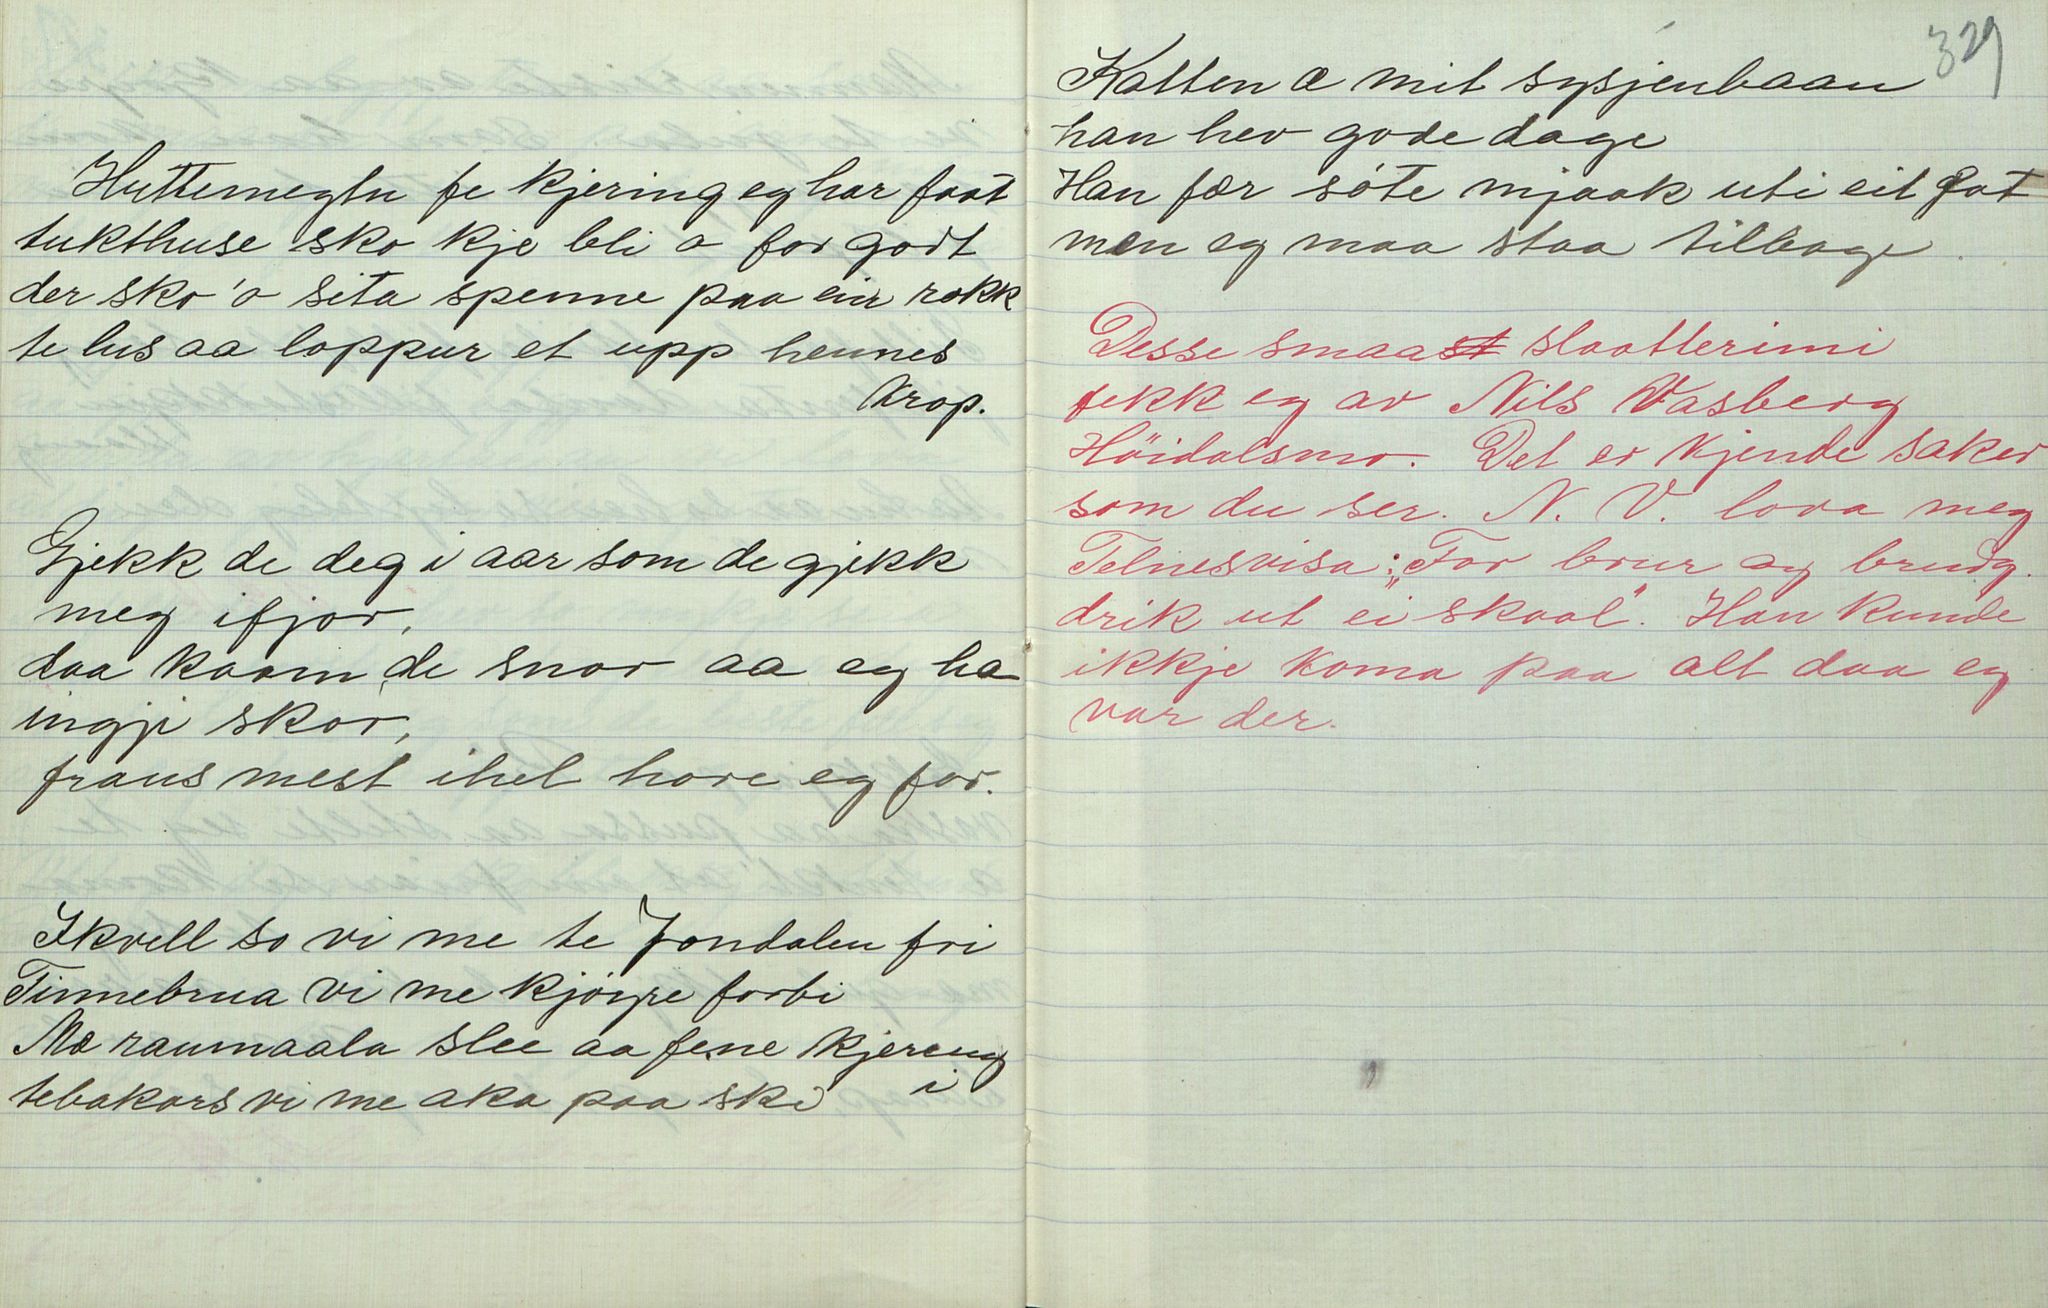 Huttemegtu fe kjering eg har faat
tukthuse sko kje bli o for godt
der sko 'o sita spenne paa ein rokk
te lus aa loppur et upp hennes
krop.
Gjekk de deg i aar som de gjekk
meg ifjor,
daa kaam de snor aa eg ha
ingji skor,
fraus mest ihel hore eg for.
Ikvell so vi me te Jondalen fri
Tinnebrua vi me kjöyre forbi
Mæ raumaala slee aa fene kjereng i
tebakars vi me aka paa ski
329
Katten æ mit sysjenbaan
han hev gode dage
Han fær söte mjaak uti eit Fat
men eg maa staa tilbage.
Desse smaast slaatterimi
fekk eg av Nils Vasberg
Höidalsmo. Det er kjende saker
som du ser. N. V. lova meg
Telnesvisa: "For brur og brudg.
drik ut ei skaal". Han kunde
ikkje koma paa alt daa eg
var der.